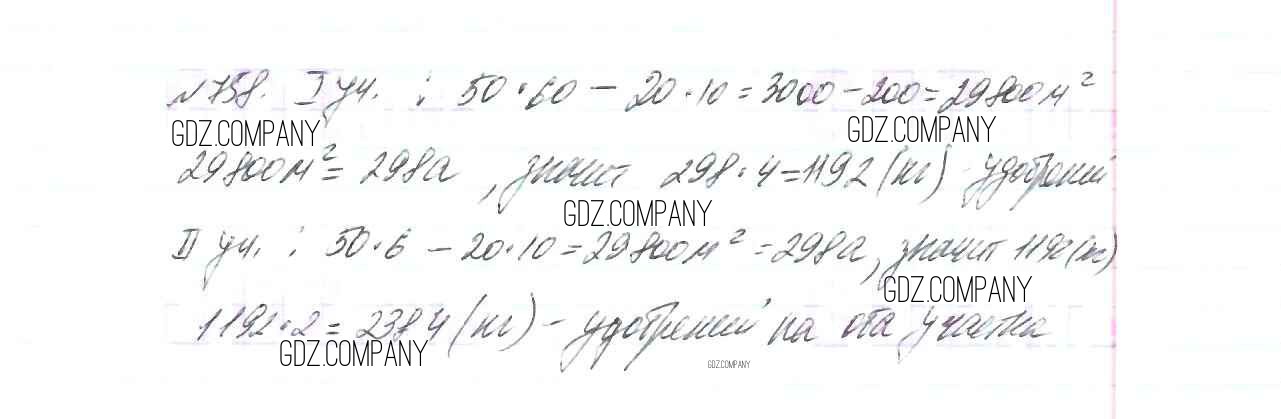 №758. I уч. : 50·60 – 20·10 = 3000 – 200 = 29800м²
GDZ.COMPANY GDZ.COMPANY
29800м² = 298а, значит 298·4=1192 (кг) удобрений
GDZ.COMPANY
II уч. : 50·6 – 20·10 = 29800м² = 298а, значит 1192 (кг)
GDZ.COMPANY
1192·2 = 2384 (кг) – удобрений на оба участка
GDZ.COMPANY GDZ.COMPANY